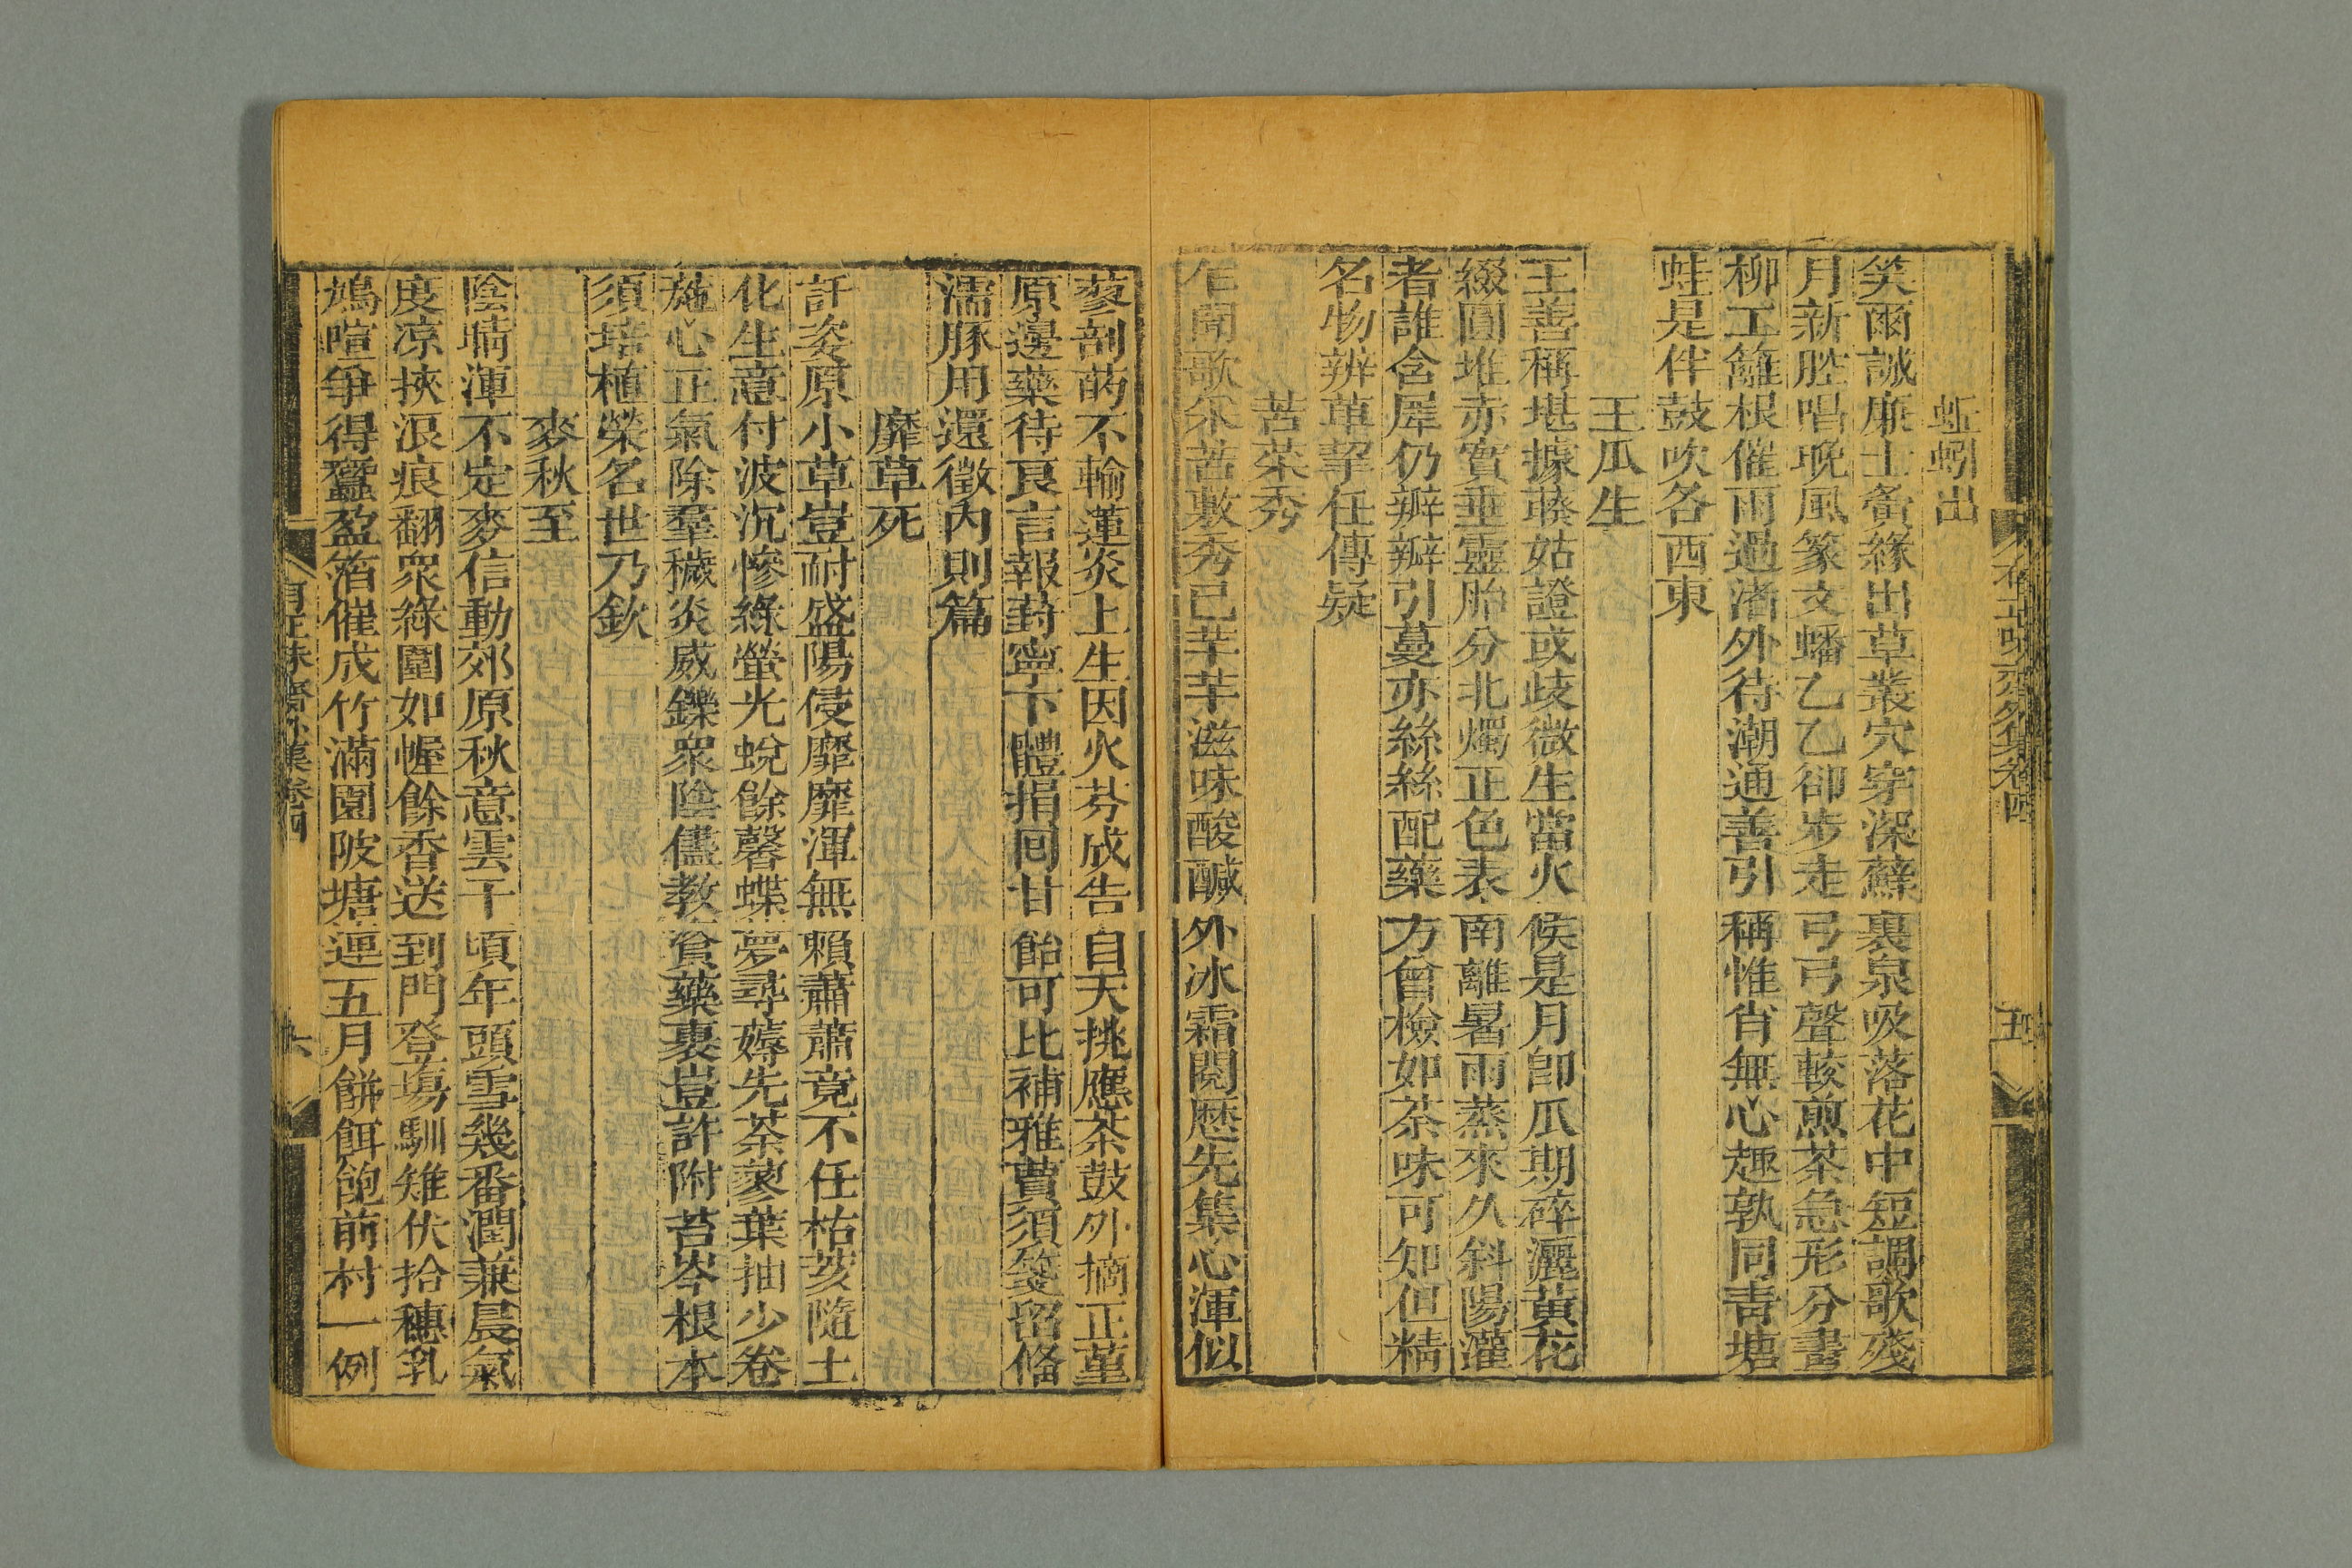 蚯蚓出
笑爾誠廉士夤緣出草叢穴穿深蘚裏泉吸落花中短調歌殘
月新腔唱晚風篆文蟠乙乙卻步走弓弓聲較煎茶急形分畫
柳工籬根催雨過渚外待潮通善引稱惟肖無心趣孰同青塘
蛙是伴鼓吹各西東
王瓜生
王善稱堪據蔾姑證或歧微生當火候是月卽瓜期碎灑黃花
綴圓堆赤實垂靈胎分北燭正色表南離暑雨蒸來久斜陽灌
者誰含犀仍瓣瓣引蔓亦絲絲配藥方曾檢如茶味可知但精
名物辨草挈任傳疑
苦菜秀
乍聞歌采苦敷秀已芊芊滋味酸鹹外冰霜閱歷先集心渾似
蓼剖菂不輸蓮炎上生因火芬成告自天挑應茶鼓外摘正堇
原邊藥待良言報葑寧下體捐回甘飴可比補雅蕒須箋留俻
濡豚用還徵內則篇
靡草死
託姿原小草豈耐盛陽侵靡靡渾無賴蕭蕭竟不任枯荄隨土
化生意付波沉慘綠螢光蛻餘馨蝶夢尋薅先荼蓼葉抽少卷
葹心正氣除羣穢炎威鑠衆陰儘教資藥裹豈許附苔岑根本
須培植榮名世乃欽
麥秋至
陰晴渾不定麥信動郊原秋意雲千頃年頭雪幾番潤兼晨氣
度凉挾浪痕翻衆綠圍如幄餘香送到門登塲馴雉伏拾穗乳
鳩喧爭得蠶盈箔催成竹滿園陂塘連五月餅餌飽前村一例
有正味齋外集卷四
五
有正味齋外集卷四
六